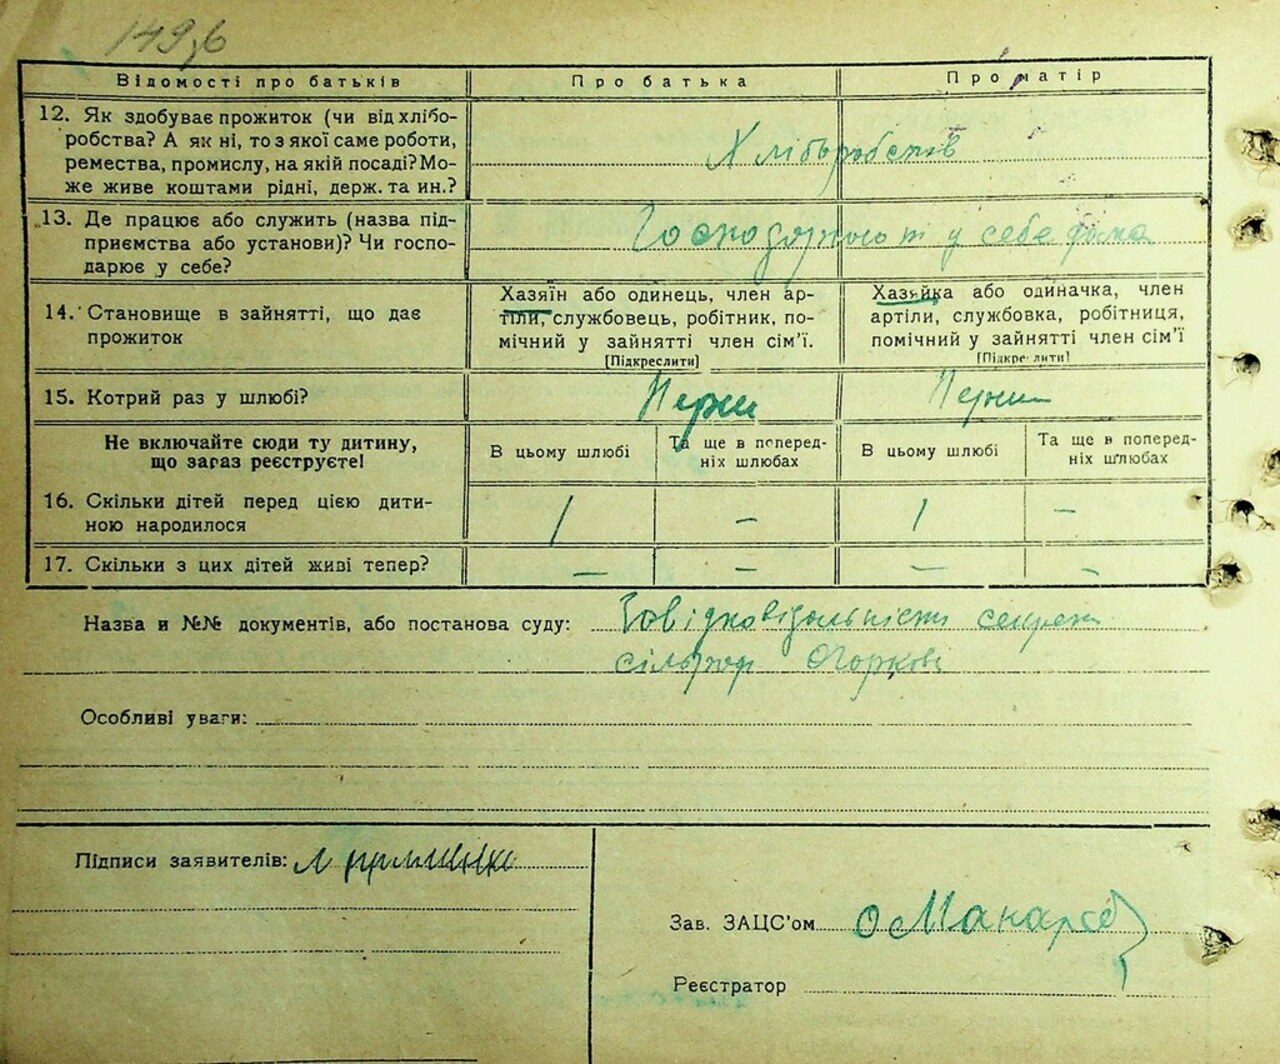 149,6
Відомості про батьків Про батька Про матір
12. Як здобуває прожиток (чи від хлібо-
робства? А як ні, то з якої саме роботи,
ремества, промислу, на якій посаді? Мо-
же живе коштами рідні, держ. та ин.?
Хліборобств
13. Де працює або служить (назва під-
приємства або установи)? Чи госпо-
дарює у себе?
у себе дома
14. Становище в зайнятті, що дає
прожиток
Хазяїн або одинець, член ар-
тіли, службовець, робітник, по-
мічний у зайнятті член сім'ї.
[Підкреслити]
Хазяйка або одиначка, член
артіли, службовка, робітниця,
помічний у зайнятті член сім'ї
[Підкреслити]
15. Котрий раз у шлюбі?
Не включайте сюди ту дитину,
що загаз реєструєте!
В цьому шлюбі
Та ще в поперед-
ніх шлюбах
В цьому шлюбі
Та ще в поперед-
ніх шлюбах
16. Скільки дітей перед цією дити-
ною народилося
1 — 1 —
17. Скільки з цих дітей живі тепер? — — — —
Назва и №№ документів, або постанова суду:
Особливі уваги:
Підписи заявителів:
Зав. ЗАЦС'ом
Реєстратор